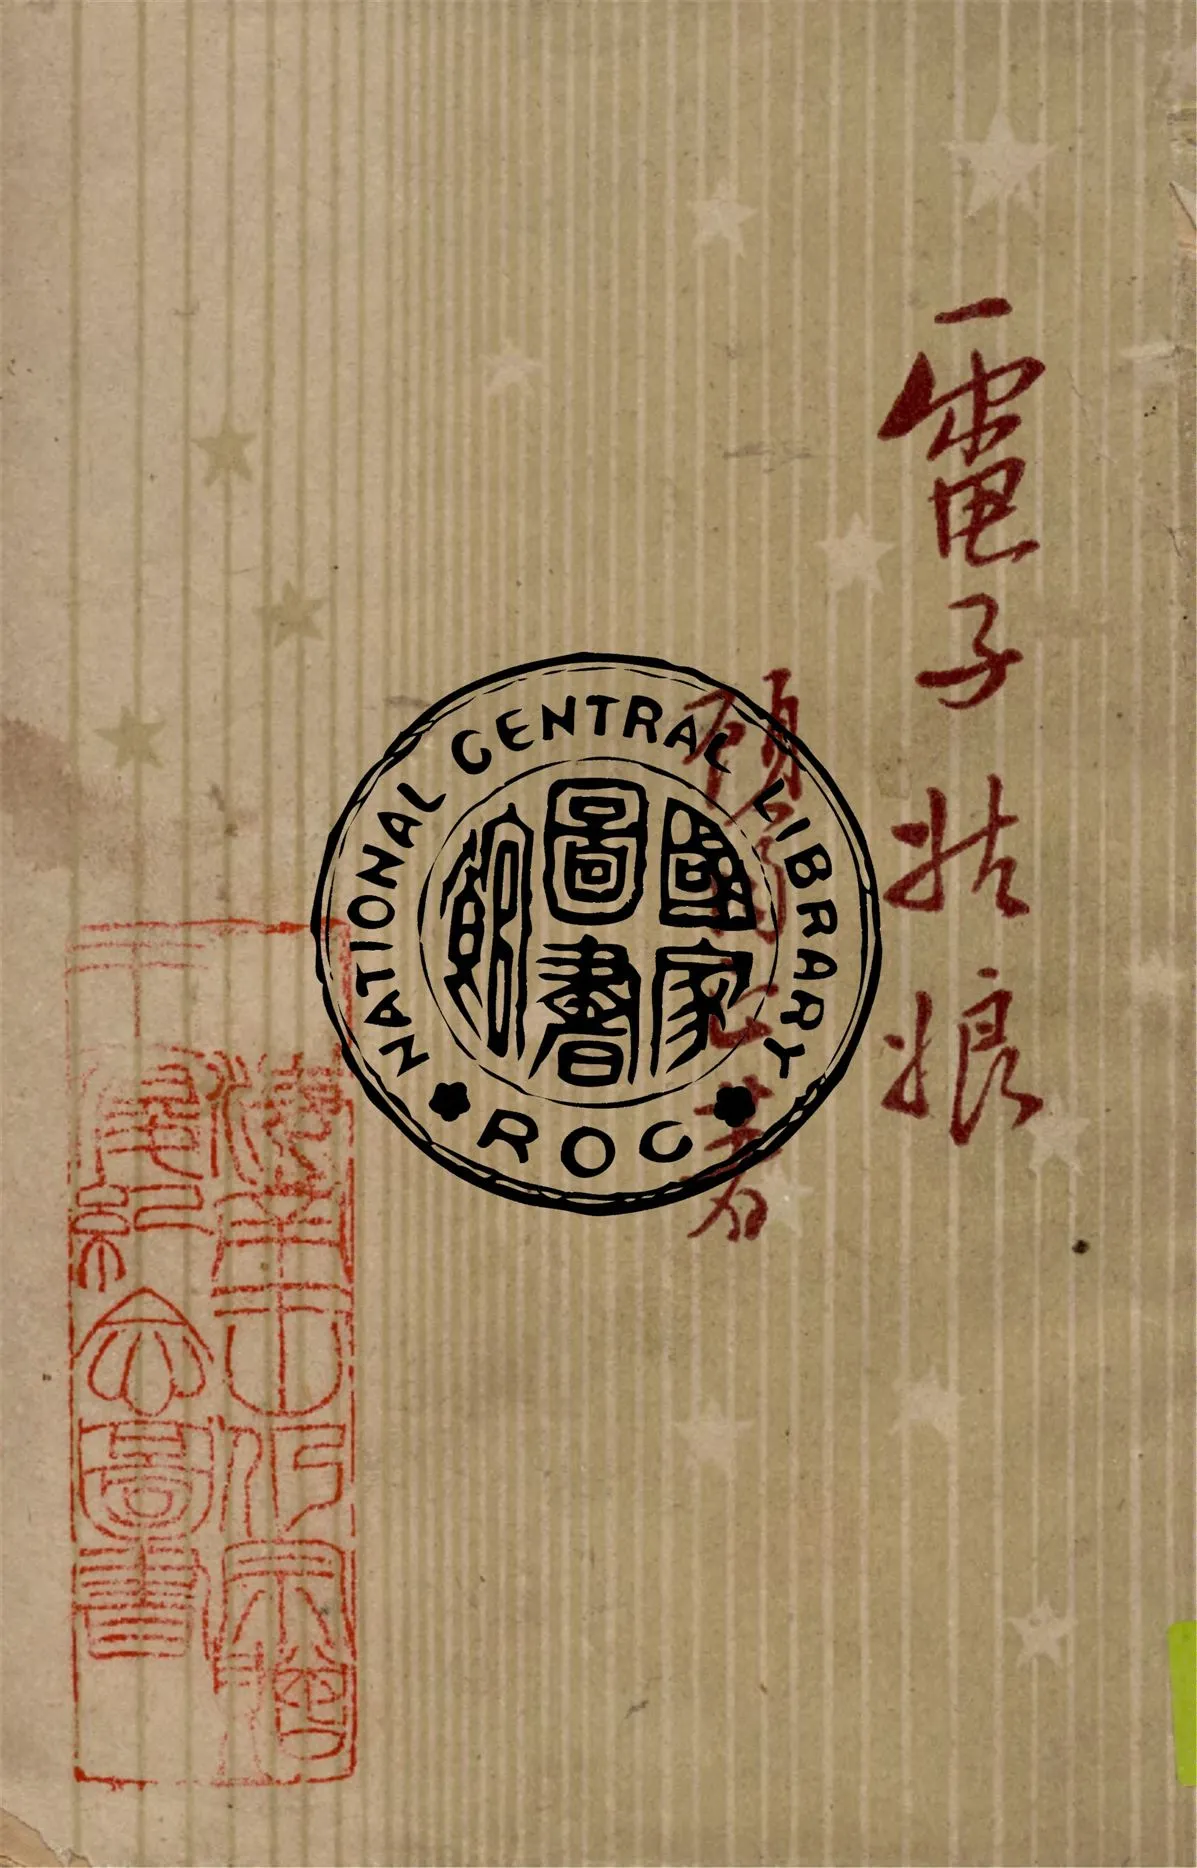 電子姑娘
顧均正著
NATIONAL CENTRAL LIBRARY
國家
圖書
館
ROC
圖書